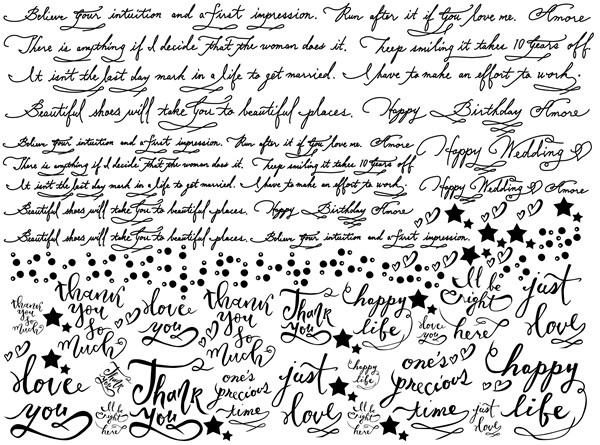 Believe your intuition and a first impression. Run after it if you love me. Amore
There is anything if I decide that the woman does it. Keep smiling it takes 10 years off.
It isn't the last day mark in a life to get married. I have to make an effort to work.
Beautiful shoes will take you to beautiful places. Happy Birthday Amore
Believe your intuition and a first impression. Run after it if you love me. Amore
Happy Wedding
There is anything if I decide that the woman does it. Keep smiling it takes 10 years off.
It isn't the last day mark in a life to get married. I have to make an effort to work.
Happy Wedding Amore
Beautiful shoes will take you to beautiful places. Happy Birthday Amore
Beautiful shoes will take you to beautiful places. Believe your intuition and a first impression.
thank
you so
much
thank
you
so
much
love
you
thank
you
so
much
Thank
you
happy
life
love
you
I'll be
right
here
just
love
love
you
Thank
you
I'll be
right
here
Thank
you
one's
precious
time
just
love
happy
life
I'll be
right
here
one's
precious
time
just
love
happy
life